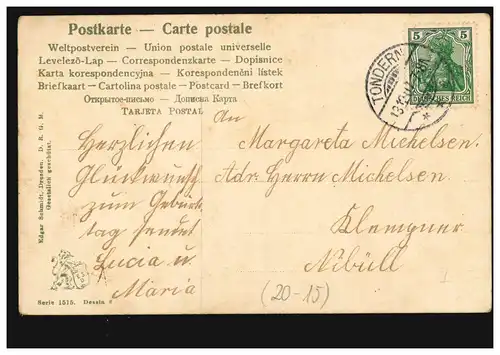 Postkarte — Carte postale
Weltpostverein — Union postale universelle
Levelező-Lap — Correspondenzkarte — Dopisnice
Karta korespondencyjna — Korespondenčni listek
Briefkaart — Cartolina postale — Postcard — Brefkort
Открытое письмо — Дописна Карта
TARJETA POSTAL
5 5
DEUTSCHES REICH
TONDERN
An
Margareta Michelsen.
Adr. Herrn Michelsen
Klempner
Nibüll
Herzlichen
Glückwunsch
zum Geburts
tag sendet
Lucia u
Maria
(20-15)
Edgar Schmidt, Dresden. D. R. G. M.
Gesetzlich geschützt.
Serie 1515. Dessin